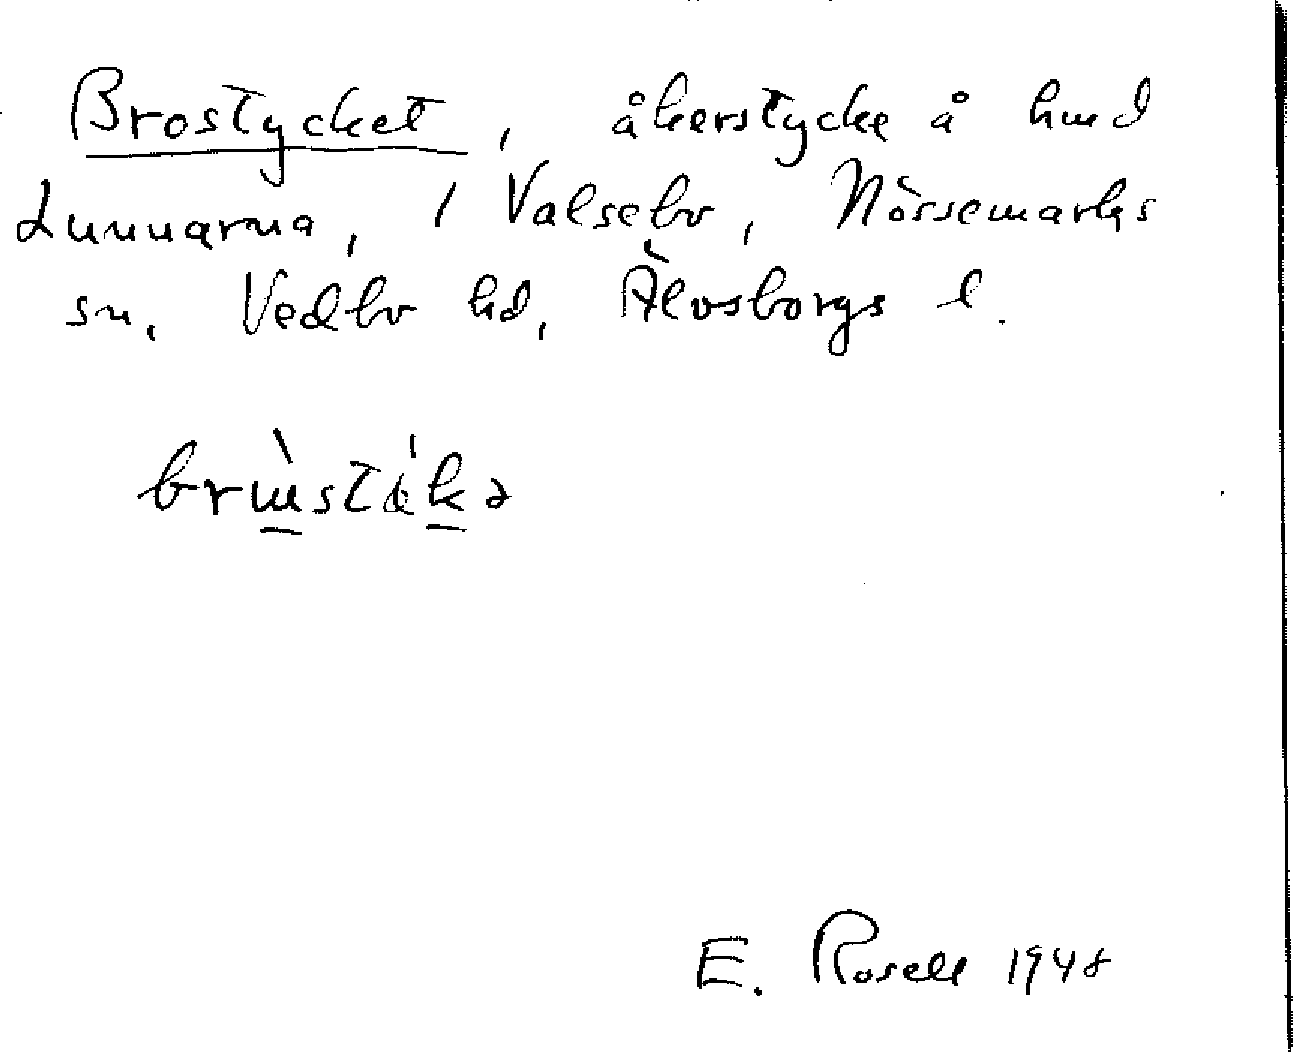 Brostycket, åkerstycke å hmd
Lunnarna, 1 Valsebo, Nössemarks
sn, Vedbo hd, Älvsborgs l.
E. Rosell 1948